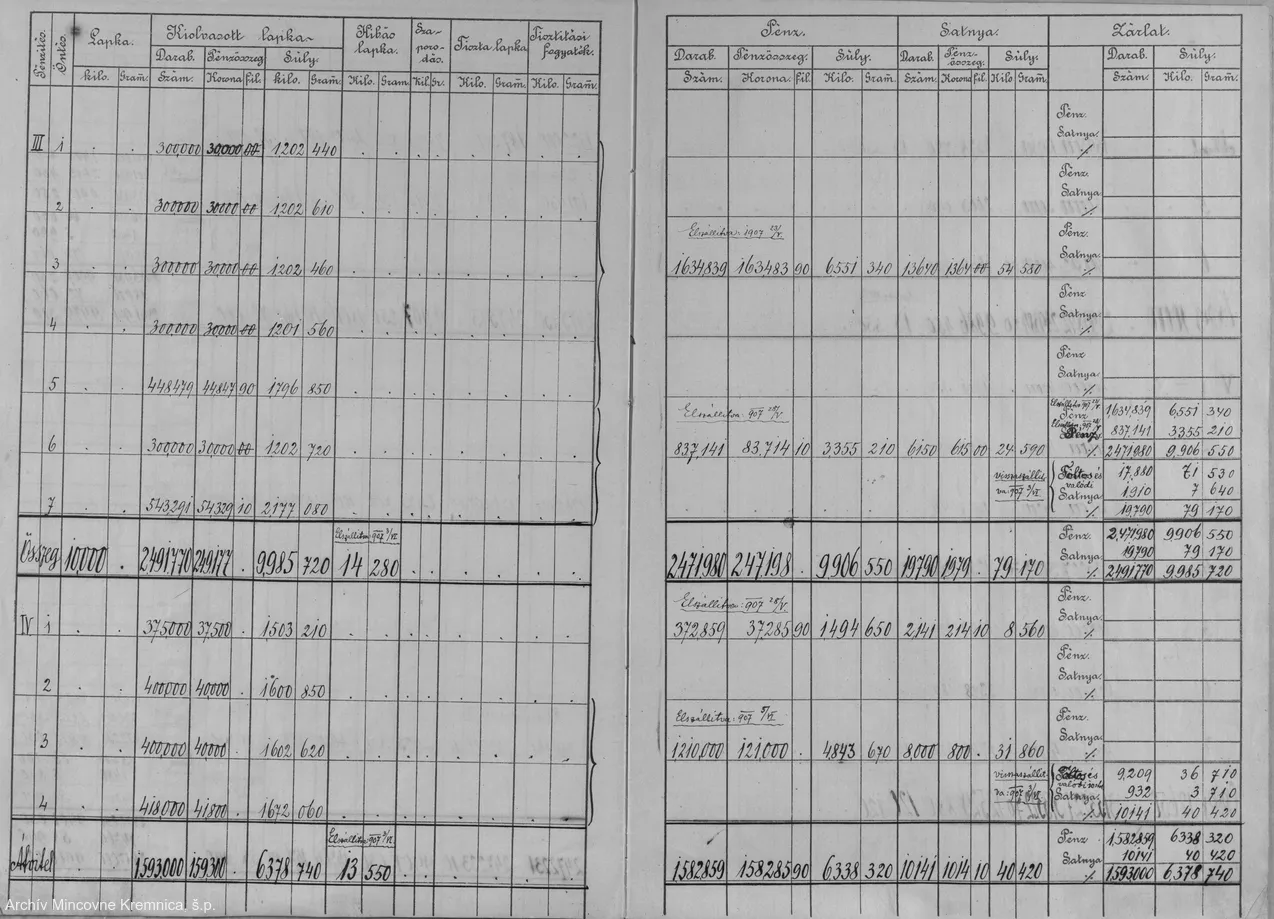 Pénzítés. Öntés. Lapka. Kiolvasott lapka Hibás lapka. Szaporodás. Tiszta lapka Tisztitási fogyaték. Pénz. Satnya. Zárlat.
Darab. Pénzösszeg Súly. Darab. Pénzösszeg. Súly. Darab. Pénzösszeg. Súly. Darab. Súly.
kilo. Gram. Szám. Korona. fil. kilo. Gram. Kilo. Gram. Kil. Gr. Kilo. Gram. Kilo. Gram. Szám. Korona. fil. Kilo. Gram. Szám. Korona. fil. Kilo. Gram. Szám. Kilo. Gram.
Pénz.
Satnya.
III 1 300,000 30,000 00 1202 440 %
Pénz.
Satnya
2 300,000 30000 00 1202 610 %
Elszállitva: 1907 23/V. Pénz.
Satnya.
3 300,000 30,000 00 1202 460 1634839 163483 90 6551 340 13670 1367 00 54 580 %
Pénz
Satnya.
4 300,000 30,000 00 1201 560 %
Pénz
Satnya.
5 448479 44847 90 1796 850 %
Elszállitva: 907 28/V. Pénz 1,634,839 6551 340
Pénz 837.141 3355 210
6 300,000 30000 00 1202 720 837.141 83.714 10 3,355 210 6150 615 00 24 590 % 2471,980 9,906 550
visszaszállitva: 907 3/VI Foltos és 17,880 71 530
valódi Satnya 1910 7 640
7 543291 54329 10 2177 080 % 19,790 79 170
Elszállitva 907 3/VI Pénz. 2,471,980 9906 550
Satnya. 19790 79 170
Összeg 10,000 2491770 249177 9,985 720 14 280 2471980 247198 9,906 550 19790 1979 79 170 % 2491,770 9,985 720
Elszállitva: 907 28/V. Pénz.
Satnya.
IV 1 375000 37,500 1503 210 372859 37285 90 1494 650 2141 214 10 8 560 %
Pénz.
Satnya.
2 400,000 40,000 1600 850 %
Elszállitva: 907 5/VI Pénz.
Satnya.
3 400,000 40,000 1602 620 1210,000 121,000 4,843 670 8,000 800 31 860 %
visszaszállitva: 907 Foltos és 9,209 36 710
Satnya. 932 3 710
4 418,000 41800 1672 060 % 10141 40 420
Elszállitva: 907 3/VI. Pénz 1,582859 6338 320
Satnya 10141 40 420
Átvitel 1593,000 159300 6378 740 13 550 1582859 158285 90 6,338 320 10141 1014 10 40 420 % 1593,000 6,378 740
Archív Mincovne Kremnica, š.p.